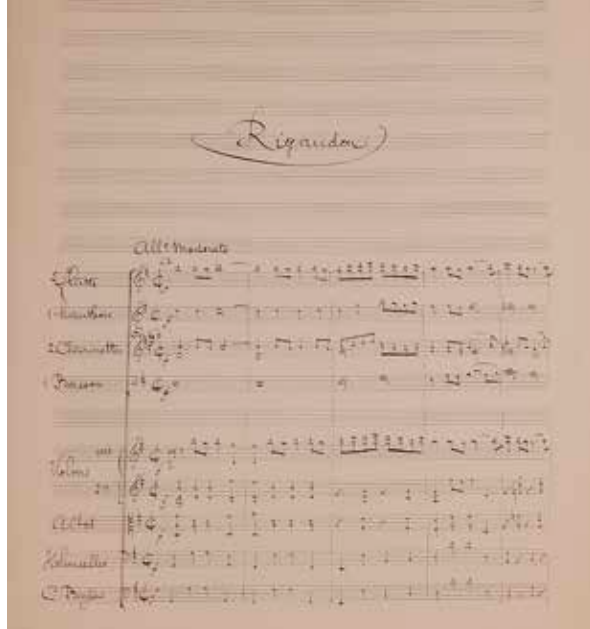 Rigaudon
All° Moderato
2 Flûtes
1 Hautbois
2 Clarinettes
1 Basson
1ers
Violons
2ds
Altos
Velloncelles
C. Basses